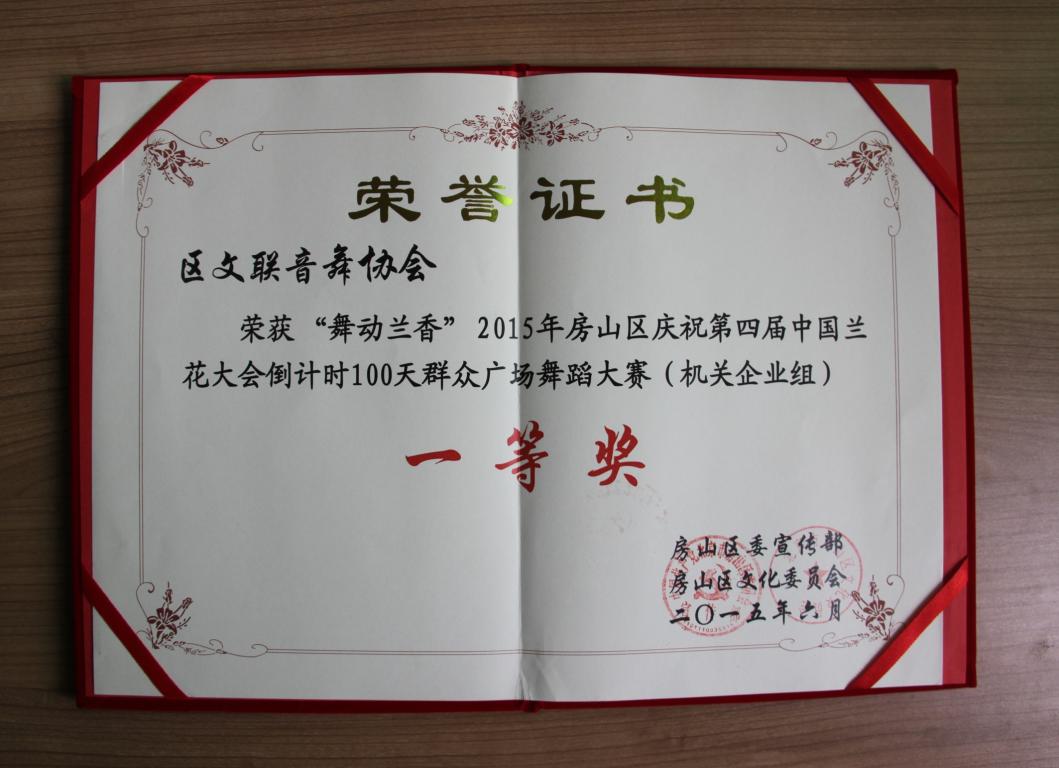 荣誉证书
区文联音舞协会
荣获“舞动兰香”2015年房山区庆祝第四届中国兰
花大会倒计时100天群众广场舞蹈大赛（机关企业组）
一等奖
房山区委宣传部
房山区文化委员会
二〇一五年六月